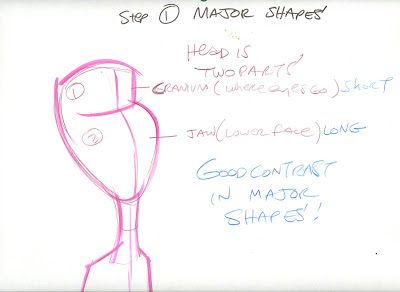 Step ① MAJOR SHAPES
HEAD IS
TWO PARTS
①
CRANIUM (where eyes go) SHORT
②
JAW (LOWER FACE) LONG
GOOD CONTRAST
IN MAJOR
SHAPES!!